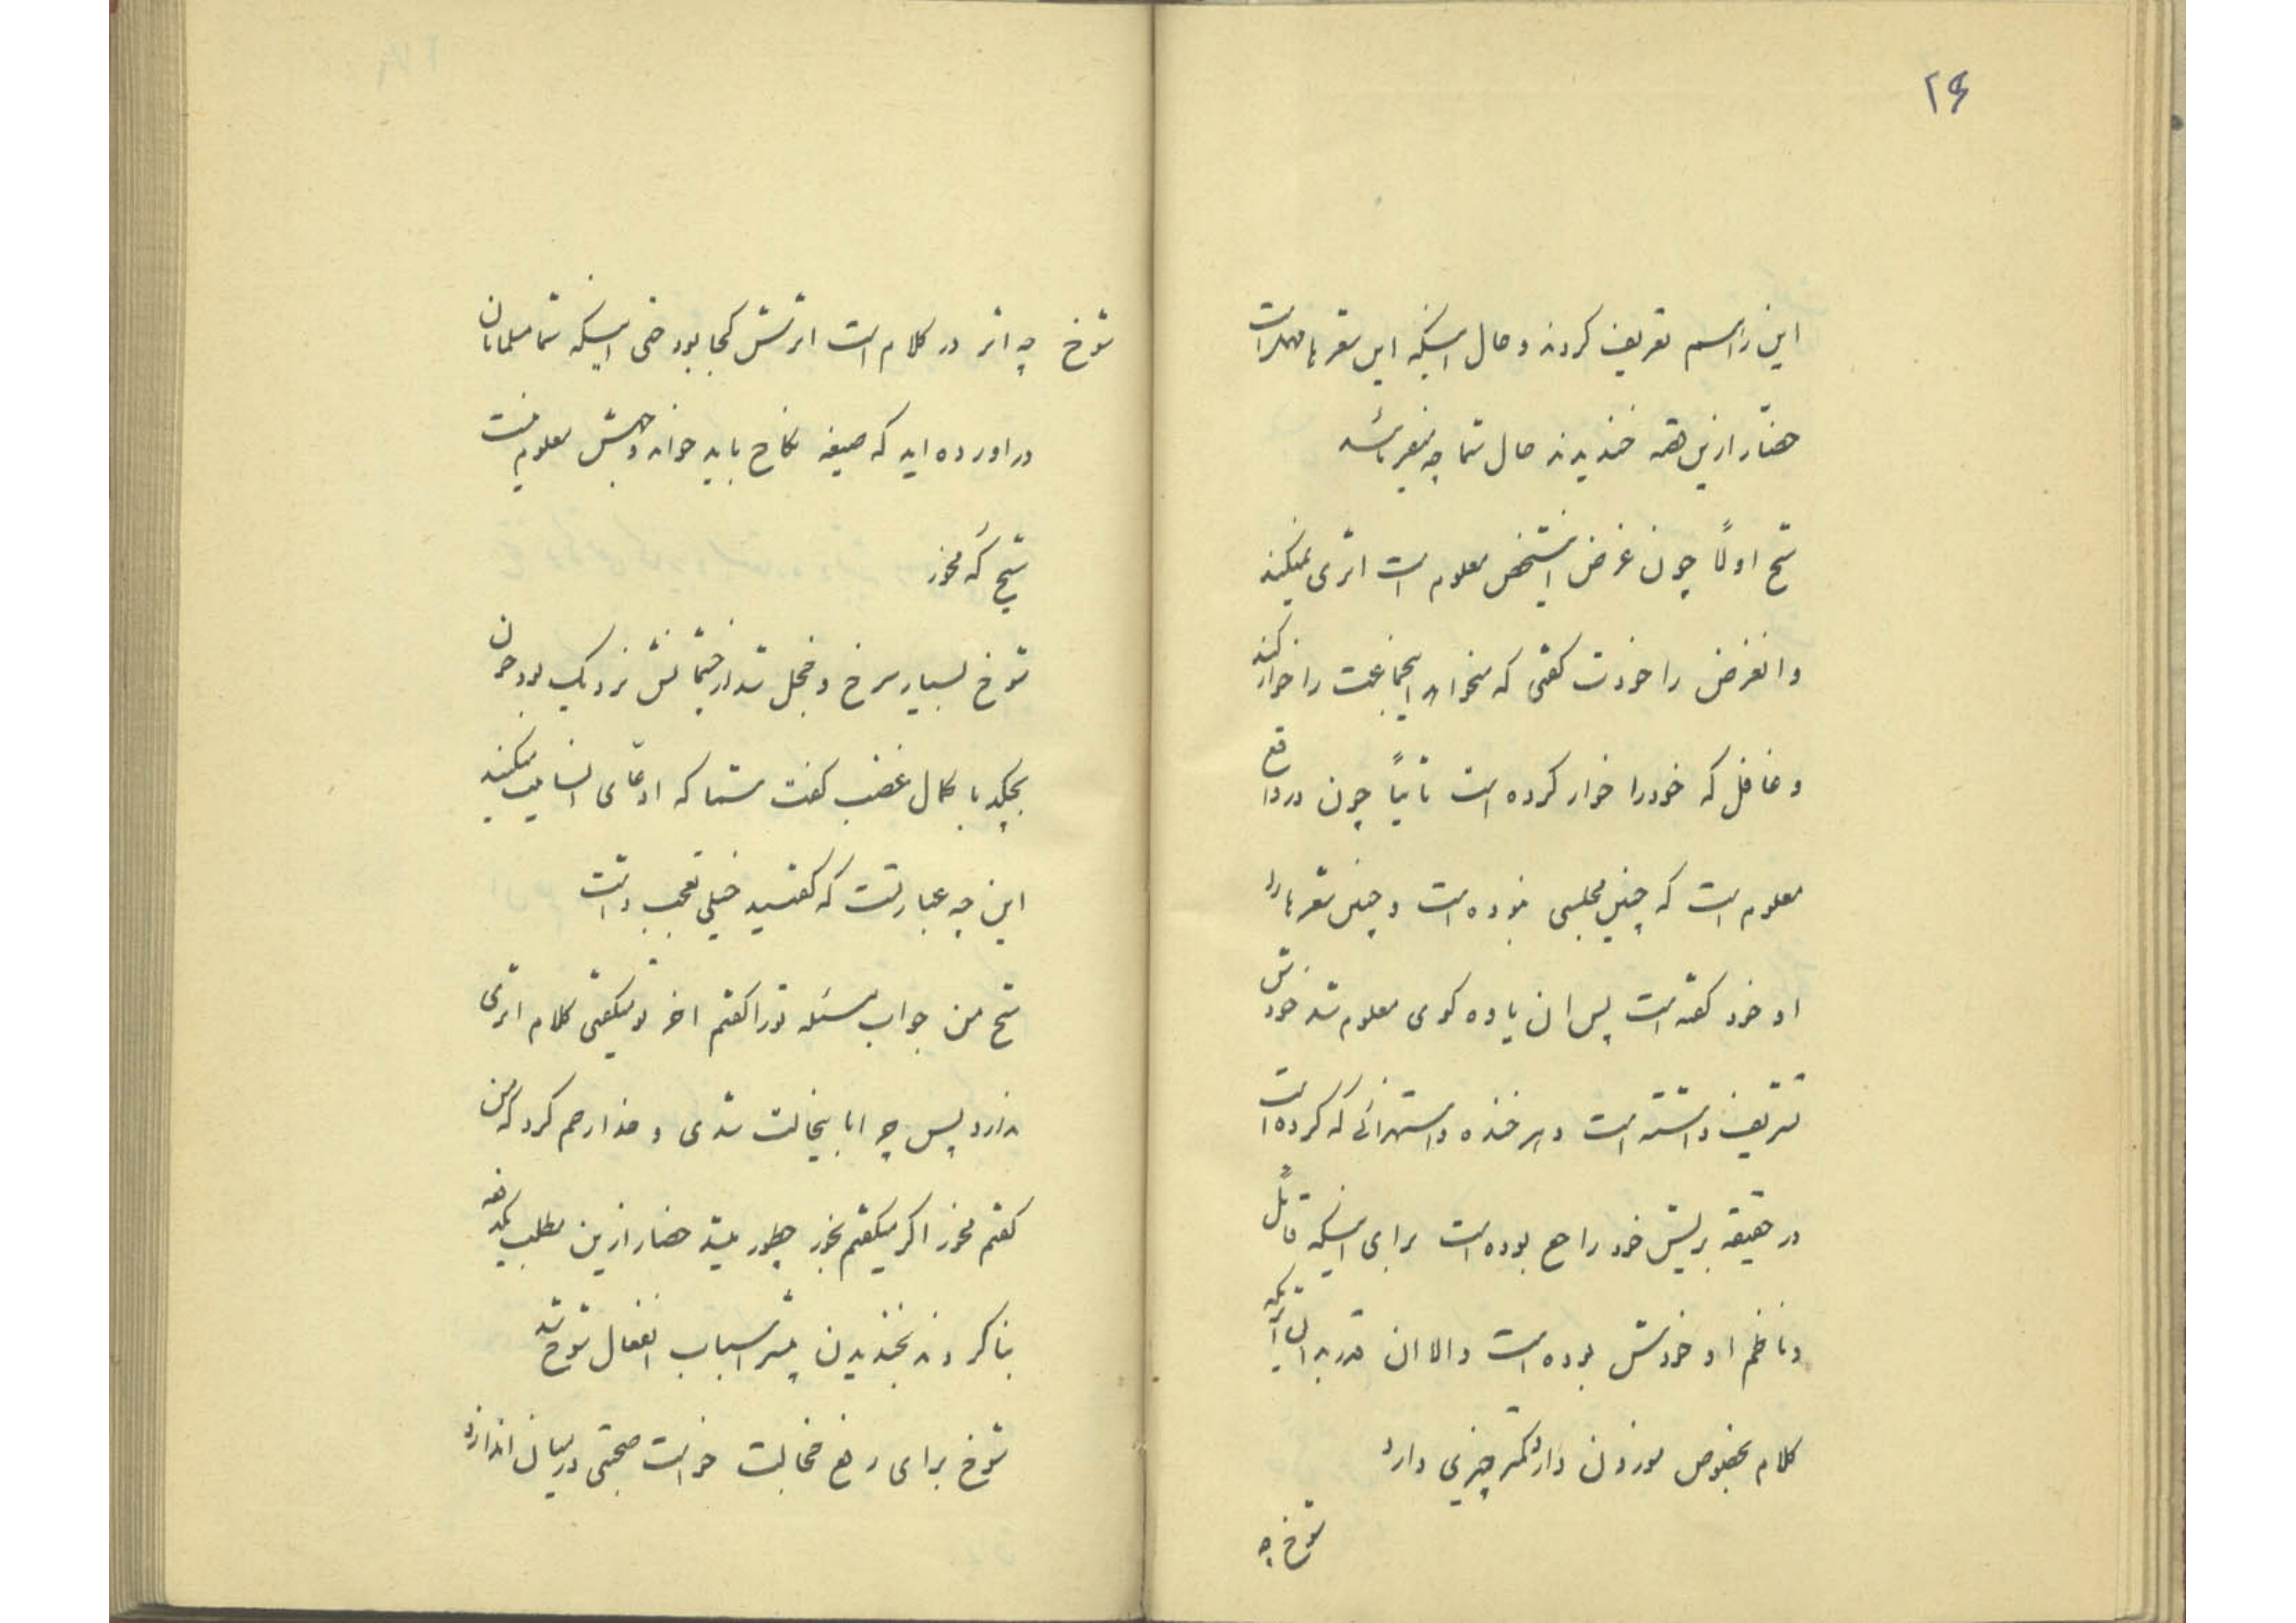 ۲۶
این را بسم تعریف کردند و حال اینکه این شعر با مهر است
حضّار ازین همه خندیدند حال شما چه میفرمائید
شیخ اولاً چون غرض اینشخص معلوم است اثری نمیکند
و انغرض را خودت گفتی که میخواهد اینجماعت را خوار کند
و غافل که خود را خوار کرده است ثانیاً چون در واقع
معلوم است که چنین مجلسی نبوده است و چنین شعرها را
او خود گفته است پس ان یاوه گوی معلوم شد خودش
تشریف داشته است و هر خنده و استهزائی که کرده است
در حقیقه بریش خود راجع بوده است برای اینکه قائل
و ناظم او خودش بوده است والا ان قدر بدان
کلام بخصوص موزون دارد کمتر چیزی دارد
شوخ چه
شوخ چه اثر در کلام است اثرش کجا بود حتی اینکه شما مسلمانان
در اورده اید که صیغه نکاح باید خواند وجهش معلوم نیست
شیخ گه مخور
شوخ بسیار سرخ و خجل شد از چشمانش نزدیک بود خون
بچکد با کمال غضب گفت شما که ادعّای انسانیت میکنید
این چه عبارتست که گفتید خیلی تعجب داشت
شیخ من جواب مسئله تو را گفتم اخر تو میگفتی کلام اثری
ندارد پس چرا باین خجالت شدی و خدا رحم کرد که من
گفتم مخور اگر میگفتم بخور چطور میشد حضار ازین مطلب یکدفعه
بنا کردند بخندیدن بیشتر اسباب انفعال شوخ شد
شوخ برای رفع خجالت خواست صحبتی در میان اندازد